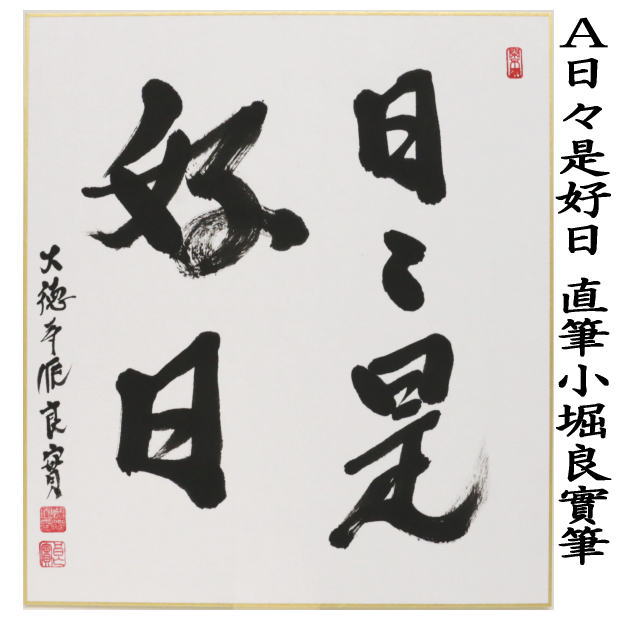 A日々是好日 直筆小堀良實筆
日々是
好日
大徳寺派良實